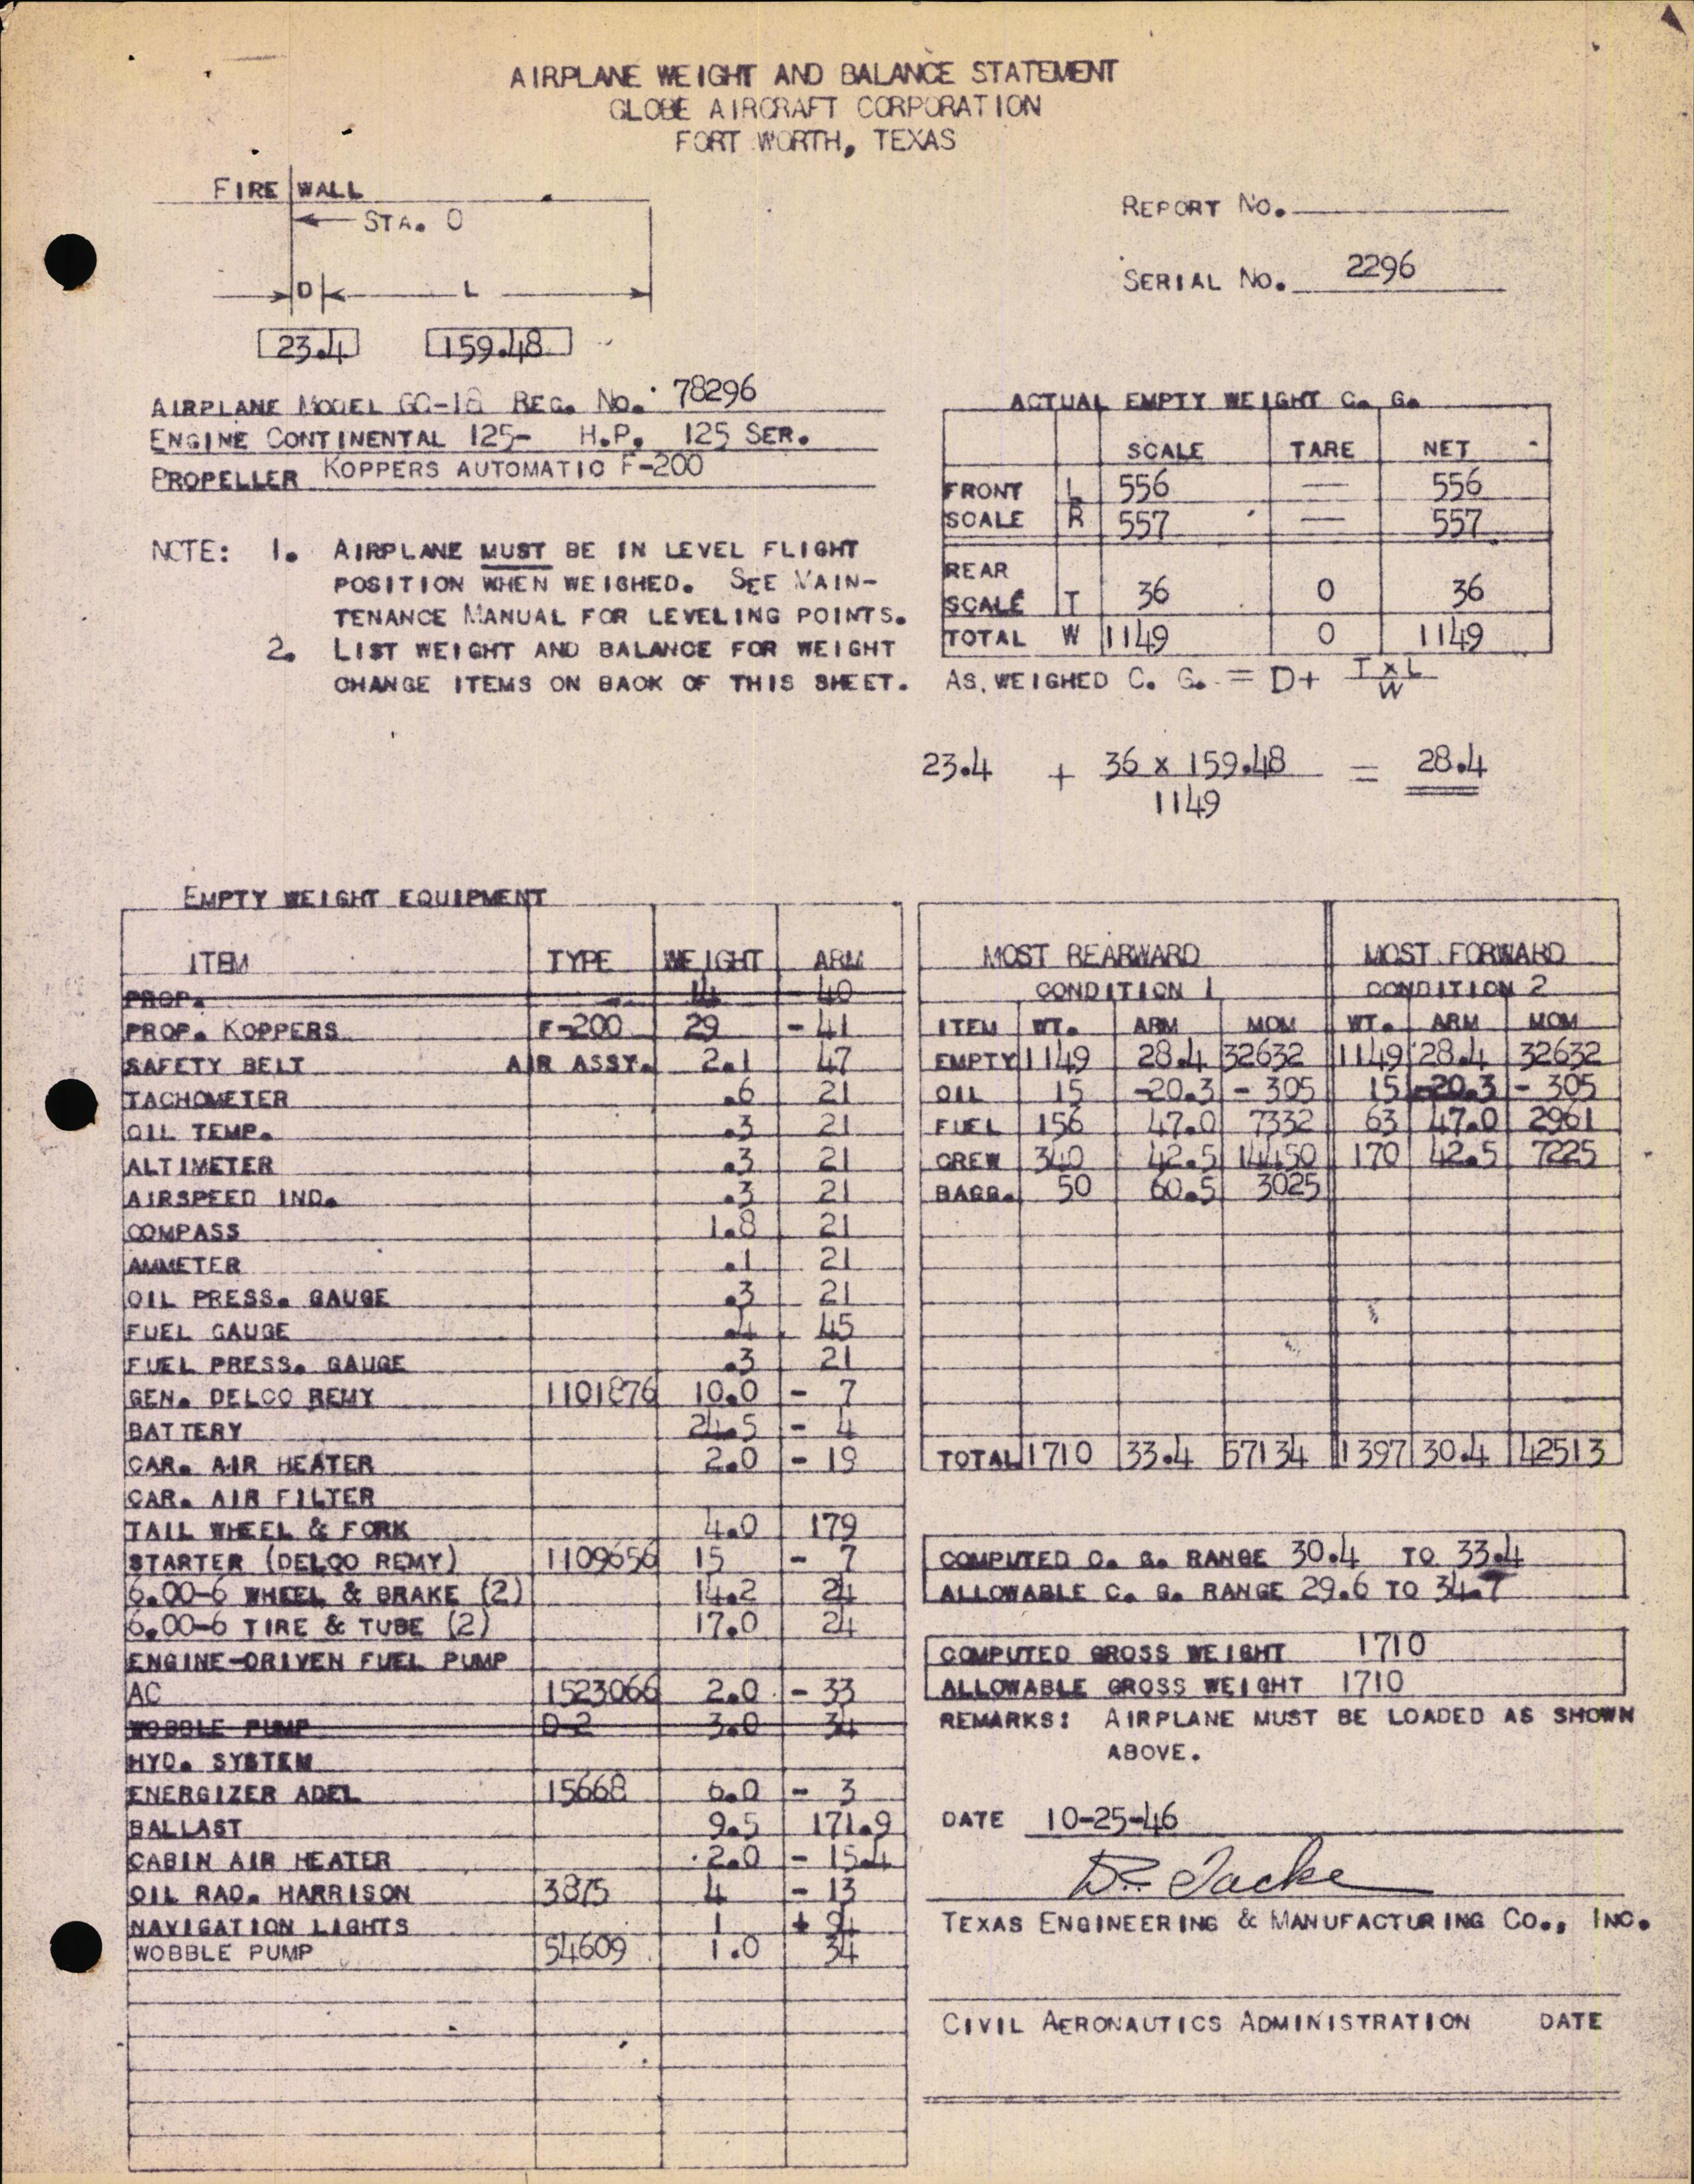 AIRPLANE WEIGHT AND BALANCE STATEMENT
GLOBE AIRCRAFT CORPORATION
FORT WORTH, TEXAS
FIRE WALL
STA. O
D L
23.4 159.48
REPORT NO.
SERIAL NO. 2296
AIRPLANE MODEL GC-1B REG. NO. 78296
ENGINE CONTINENTAL 125- H.P. 125 SER.
PROPELLER KOPPERS AUTOMATIC F-200
NOTE: 1. AIRPLANE MUST BE IN LEVEL FLIGHT
POSITION WHEN WEIGHED. SEE MAIN-
TENANCE MANUAL FOR LEVELING POINTS.
2. LIST WEIGHT AND BALANCE FOR WEIGHT
CHANGE ITEMS ON BACK OF THIS SHEET.
ACTUAL EMPTY WEIGHT C. G.
SCALE TARE NET
FRONT L 556 — 556
SCALE R 557 — 557
REAR
SCALE T 36 0 36
TOTAL W 1149 0 1149
AS WEIGHED C. G. = D+ T x L
W
23.4 + 36 x 159.48 = 28.4
1149
EMPTY WEIGHT EQUIPMENT
ITEM TYPE WEIGHT ARM
PROP. 14 - 40
PROP. KOPPERS F-200 29 - 41
SAFETY BELT AIR ASSY. 2.1 47
TACHOMETER .6 21
OIL TEMP. .3 21
ALTIMETER .3 21
AIRSPEED IND. .3 21
COMPASS 1.8 21
AMMETER .1 21
OIL PRESS. GAUGE .3 21
FUEL GAUGE .4 45
FUEL PRESS. GAUGE .3 21
GEN. DELCO REMY 1101876 10.0 - 7
BATTERY 24.5 - 4
CAR. AIR HEATER 2.0 - 19
CAR. AIR FILTER
TAIL WHEEL & FORK 4.0 179
STARTER (DELCO REMY) 1109656 15 - 7
6.00-6 WHEEL & BRAKE (2) 14.2 24
6.00-6 TIRE & TUBE (2) 17.0 24
ENGINE-DRIVEN FUEL PUMP
AC 1523066 2.0 - 33
WOBBLE PUMP D-2 3.0 34
HYD. SYSTEM
ENERGIZER ADEL 15668 6.0 - 3
BALLAST 9.5 171.9
CABIN AIR HEATER 2.0 - 15.4
OIL RAD. HARRISON 3875 4 - 13
NAVIGATION LIGHTS 1 + 94
WOBBLE PUMP 54609 1.0 34
MOST REARWARD MOST FORWARD
CONDITION 1 CONDITION 2
ITEM WT. ARM MOM WT. ARM MOM
EMPTY 1149 28.4 32632 1149 28.4 32632
OIL 15 -20.3 - 305 15 -20.3 - 305
FUEL 156 47.0 7332 63 47.0 2961
CREW 340 42.5 14450 170 42.5 7225
BAGG. 50 60.5 3025
TOTAL 1710 33.4 57134 1397 30.4 42513
COMPUTED C. G. RANGE 30.4 TO 33.4
ALLOWABLE C. G. RANGE 29.6 TO 34.7
COMPUTED GROSS WEIGHT 1710
ALLOWABLE GROSS WEIGHT 1710
REMARKS: AIRPLANE MUST BE LOADED AS SHOWN
ABOVE.
DATE 10-25-46
TEXAS ENGINEERING & MANUFACTURING CO., INC.
CIVIL AERONAUTICS ADMINISTRATION DATE